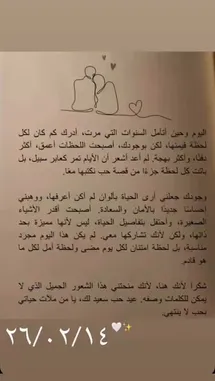 اليوم وحين أتأمل السنوات التي مرت، أدرك كم كان لكل
لحظة قيمتها، لكن بوجودك، أصبحت اللحظات أعمق، أكثر
دفئا، وأكثر بهجة. لم أعد أشعر أن الأيام تمر كعابر سبيل، بل
باتت كل لحظة جزءًا من قصة حب نكتبها معًا.
وجودك جعلني أرى الحياة بألوان لم أكن أعرفها، ووهبني
إحساسًا جديدًا بالأمان والسعادة. أصبحت أقدر الأشياء
الصغيرة، وأحتفل بتفاصيل الحياة، ليس لأنها مميزة بحد
ذاتها، ولكن لأنك تشاركها معي. لم يكن هذا اليوم مجرد
مناسبة، بل لحظة امتنان لكل يوم مضى ولحظة أمل لكل ما
هو قادم.
شكرا لأنك هنا، لأنك منحتني هذا الشعور الجميل الذي لا
يمكن للكلمات وصفه. عيد حب سعيد لك، يا من ملأت حياتي
بحب لا ينتهي.
٢٦/٠٢/١٤